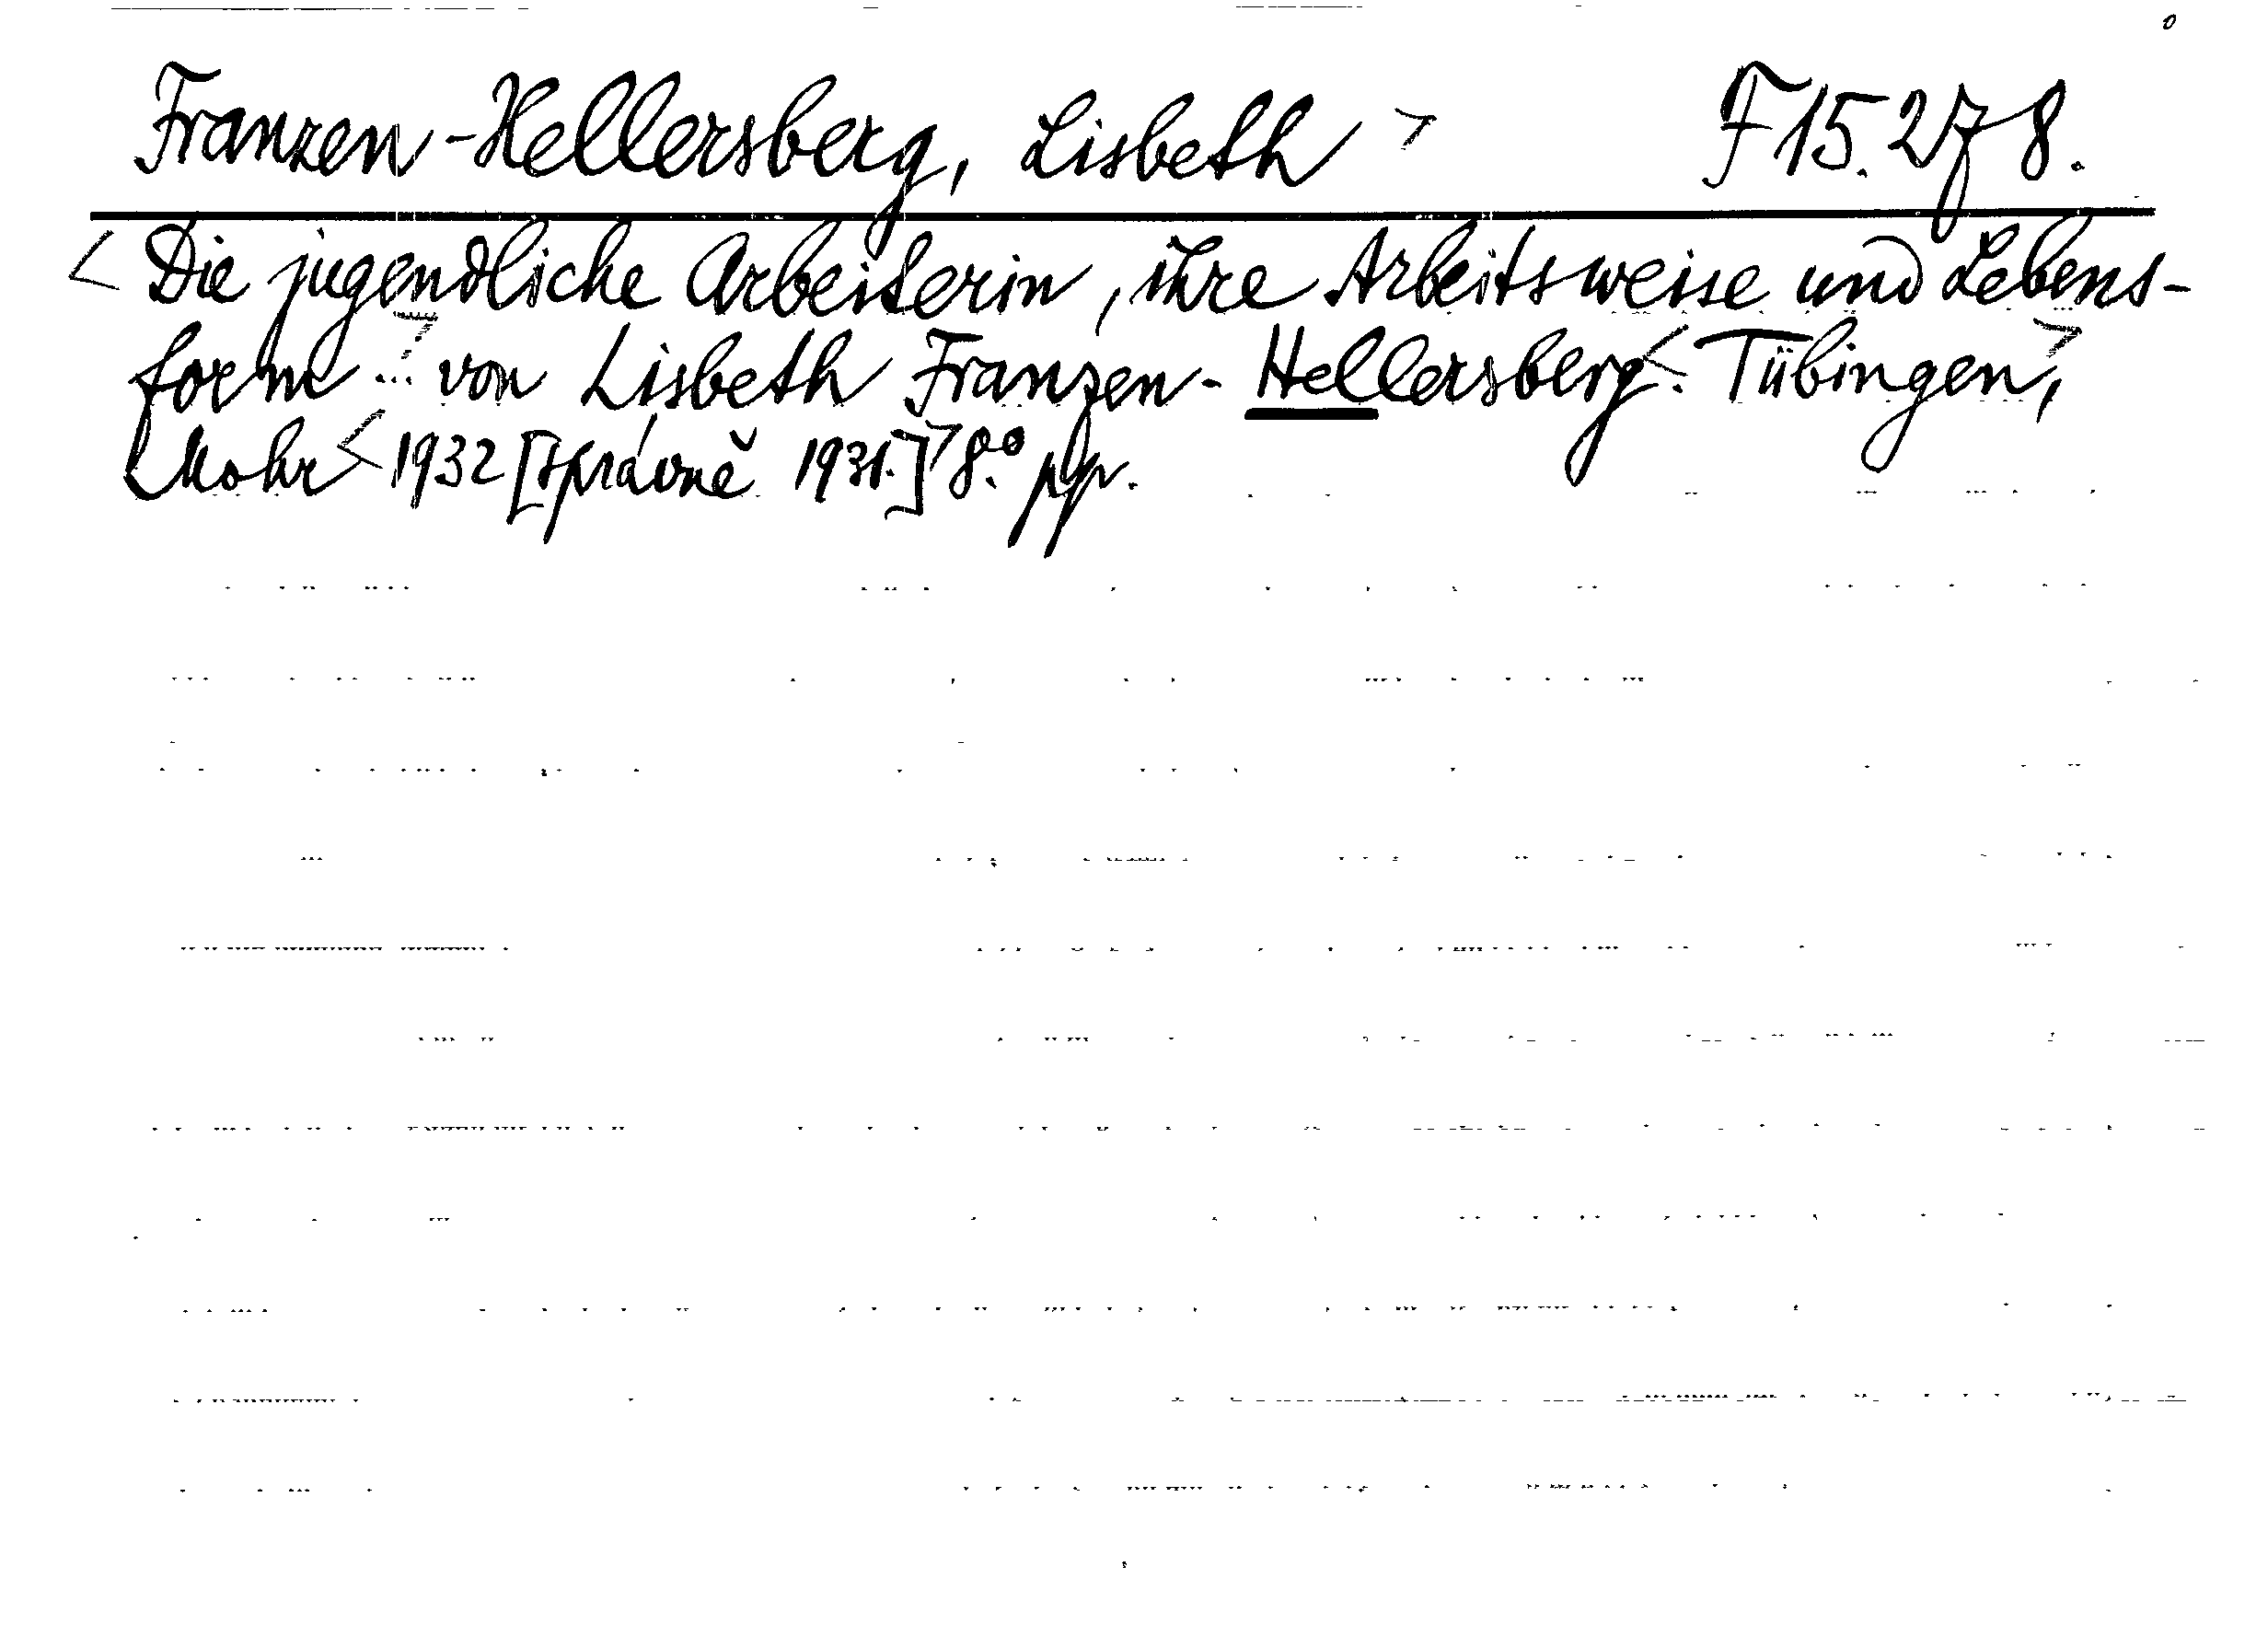 Franzen-Hellersberg, Lisbeth > F 15.278.
< Die jugendliche Arbeiterin, ihre Arbeitsweise und Lebens-
form ...> von Lisbeth Franzen-Hellersberg<. Tübingen>,
Mohr < 1932 [správně 1931.]> 8.° ppr.